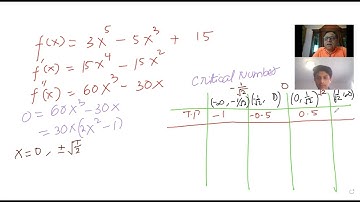 f(x) = 3x⁵ - 5x³ + 15
f'(x) = 15x⁴ - 15x²
f"(x) = 60x³ - 30x
0 = 60x³ - 30x
= 30x(2x² - 1)
x = 0, ±√1/2
Critical Number
-1/√2 0
(-∞, -1/√2) (-1/√2, 0) (0, 1/√2)
T.P -1 -0.5 0.5